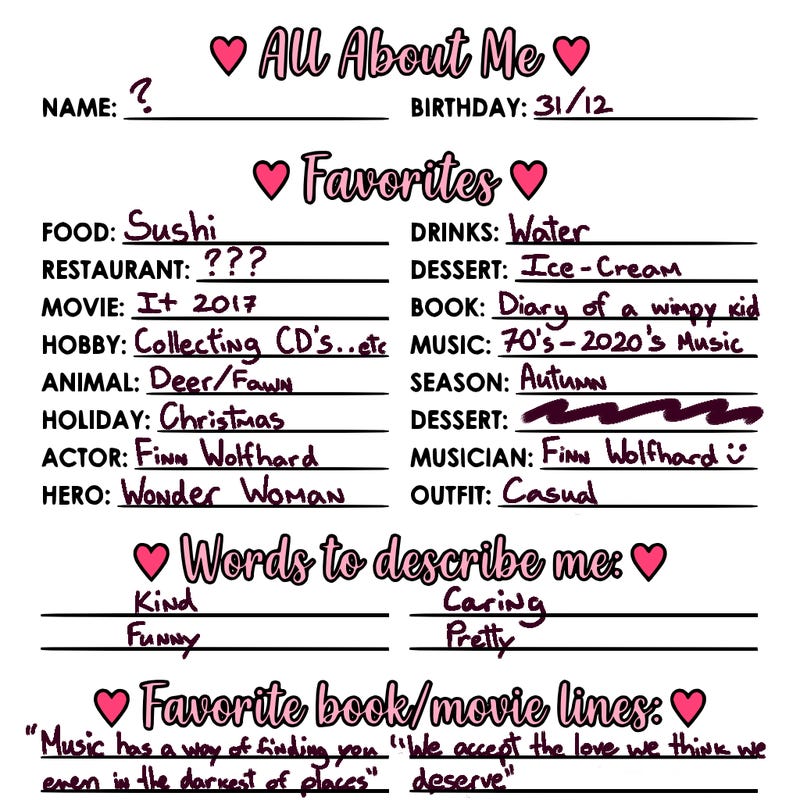 All About Me
NAME: ? BIRTHDAY: 31/12
Favorites
FOOD: Sushi DRINKS: Water
RESTAURANT: ??? DESSERT: Ice-Cream
MOVIE: It 2017 BOOK: Diary of a wimpy kid
HOBBY: Collecting CD's..etc MUSIC: 70's-2020's Music
ANIMAL: Deer/Fawn SEASON: Autumn
HOLIDAY: Christmas DESSERT:
ACTOR: Finn Wolfhard MUSICIAN: Finn Wolfhard
HERO: Wonder Woman OUTFIT: Casual
Words to describe me:
Kind Caring
Funny Pretty
Favorite book/movie lines:
"Music has a way of finding you "We accept the love we think we
even in the darkest of places" deserve"